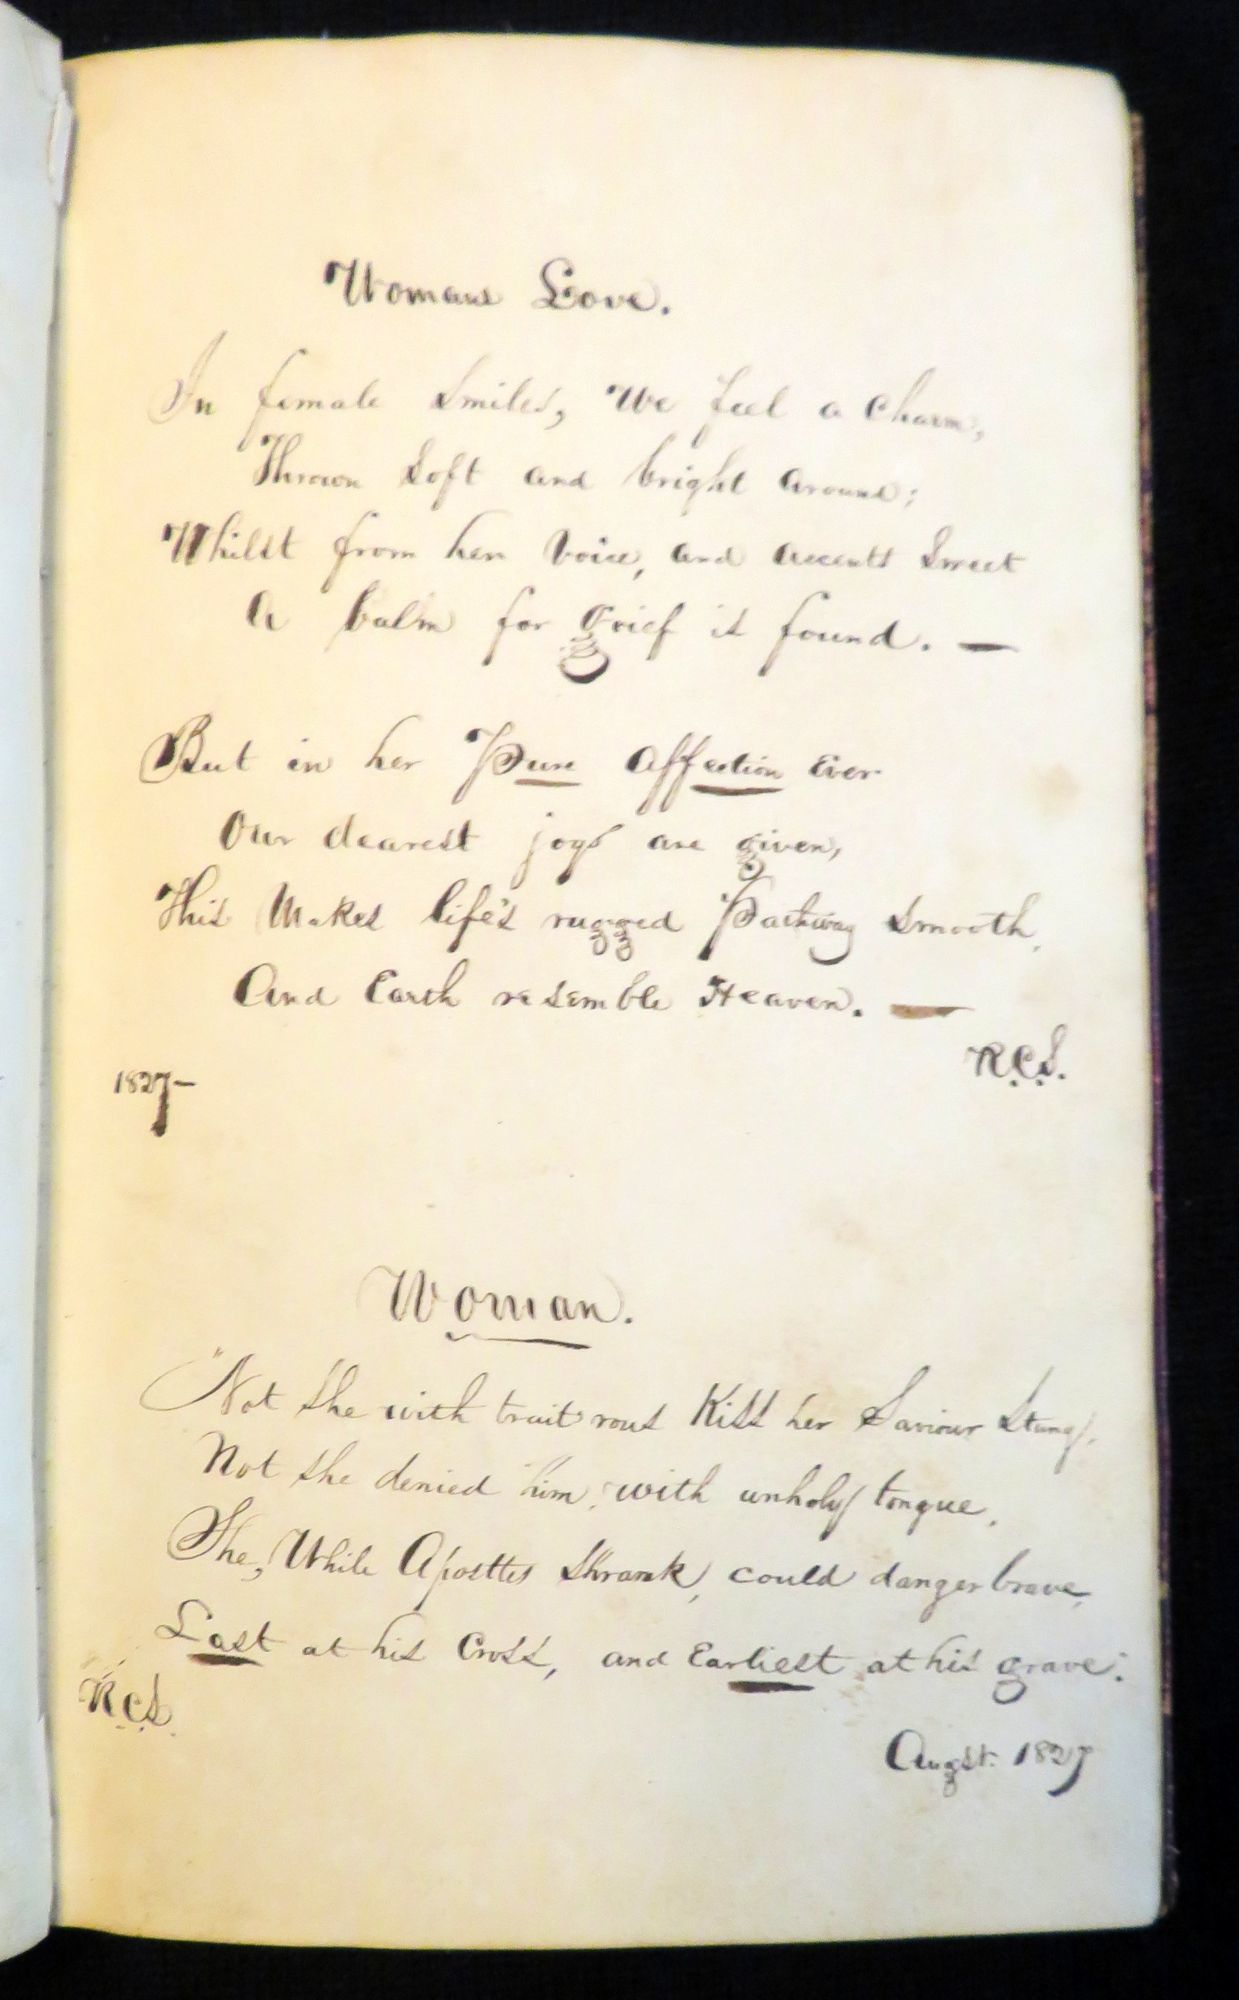 Womans Love.
In female Smiles, We feel a Charm,
Thrown Soft and bright around;
Whilst from her Voice, and accents Sweet
A balm for grief is found. —
But in her Pure affection Ever
Our dearest joys are given,
This Makes life's rugged Pathway Smooth,
And Earth resemble Heaven. —
R.C.S.
1827—
Woman.
"Not She with trait'rous Kiss her Saviour Stung,
Not She denied him, with unholy tongue,
She, While Apostles Shrank, could danger brave,
Last at his Cross, and Earliest at his grave."
R.C.S.
Augst. 1827